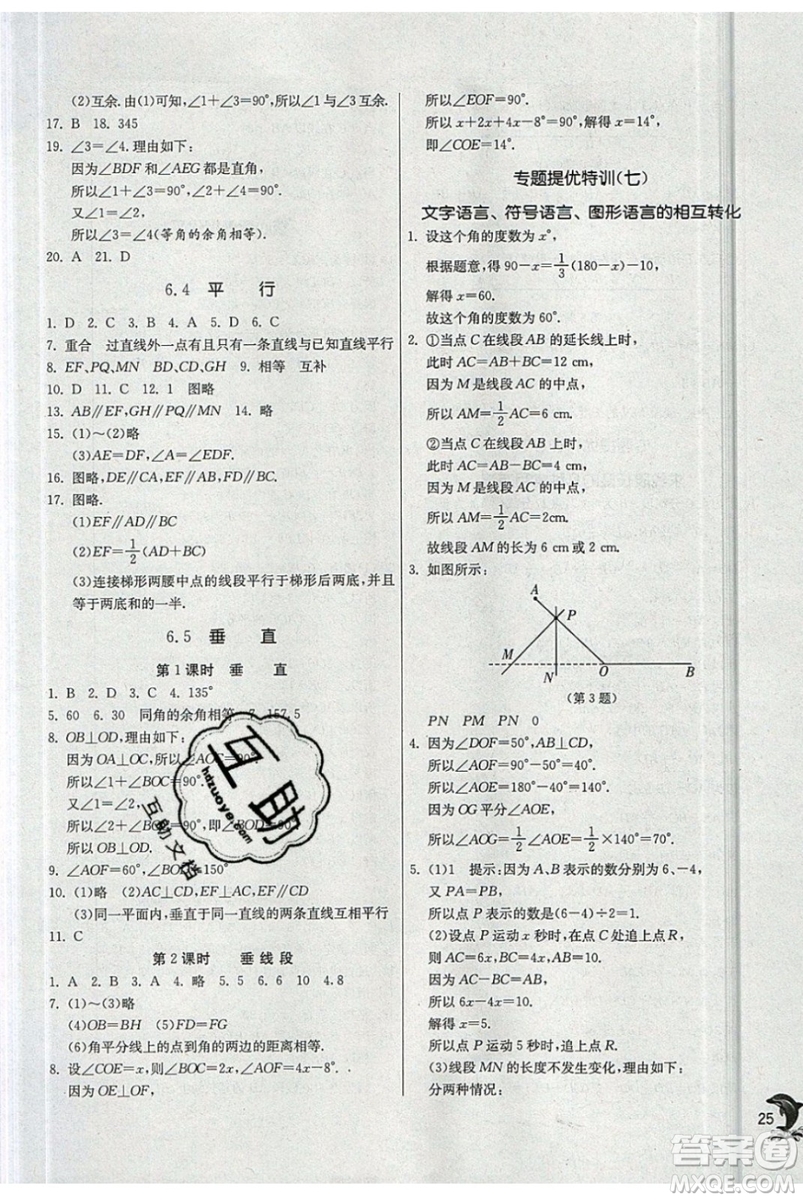 (2)互余.由(1)可知,∠1+∠3=90°,所以∠1与∠3互余.
17. B  18. 345
19. ∠3=∠4.理由如下:
因为∠BDF和∠AEG都是直角,
所以∠1+∠3=90°,∠2+∠4=90°,
又∠1=∠2,
所以∠3=∠4(等角的余角相等).
20. A  21. D
6.4 平 行
1. D  2. C  3. B  4. D  5. D  6. C
7. 重合  过直线外一点有且只有一条直线与已知直线平行
8. EF,PQ,MN  BD,CD,GH  9. 相等  互补
10. D  11. C  12. 1  图略
13. AB∥EF,GH∥PQ∥MN  14. 略
15. (1)~(2)略
(3)AE=DF,∠A=∠EDF.
16. 图略,DE∥CA,EF∥BC,∠C=∠DEF.
17. 图略.
(1)EF∥AD∥BC
(2)EF=1/2(AD+BC)
(3)连接梯形两腰中点的线段平行于梯形后两底,并且
等于两底和的一半.
6.5 垂 直
第1课时 垂 直
1. B  2. D  3. C  4. 135°
5. 60  6. 30  同角的余角相等  7. 157.5
8. OB⊥OD.理由如下:
因为OA⊥OC,所以∠AOC=90°.
所以∠1+∠BOC=90°.
又∠1=∠2,
所以∠2+∠BOC=90°,即∠BOD=90°.
所以OB⊥OD.
9. ∠AOF=60°,∠BOC=150°
10. (1)略  (2)AC⊥CD,AB⊥CD
(3)同一平面内,垂直于同一直线的两条直线互相平行
11. C
第2课时 垂线段
1. A  2. B  3. A  4. 略  5. 5  6. 6  10  4.8
7. (1)~(3)略
(4)OB=BH  (5)FD=FG
(6)角平分线上的点到角的两边的距离相等.
8. 设∠COE=x,则∠BOC=2x,∠AOF=4x-8°.
因为OE⊥OF,
所以∠EOF=90°.
所以x+2x+4x-8°=90°,解得x=14°,
即∠COE=14°.
专题提优特训(七)
文字语言、符号语言、图形语言的相互转化
1. 设这个角的度数为x°,
根据题意,得90-x=1/3(180-x)-10,
解得x=60.
故这个角的度数为60°.
2. ①当点C在线段AB的延长线上时,
此时AC=AB+BC=12 cm,
因为M是线段AC的中点,
所以AM=1/2AC=6 cm.
②当点C在线段AB上时,
此时AC=AB-BC=4 cm,
因为M是线段AC的中点,
所以AM=1/2AC=2cm.
故线段AM的长为6 cm或2 cm.
3. 如图所示:
A
P
M
N
O
B
(第3题)
PN  PM  PN  0
4. 因为∠DOF=50°,AB⊥CD,
所以∠BOF=90°-50°=40°.
所以∠AOE=180°-40°=140°.
因为OG平分∠AOE,
所以∠AOG=1/2∠AOE=1/2×140°=70°.
5. (1)1  提示:因为A、B表示的数分别为6、-4,
又PA=PB,
所以点P表示的数是(6-4)÷2=1.
(2)设点P运动x秒时,在点C处追上点R,
则AC=6x,BC=4x,AB=10.
因为AC-BC=AB,
所以6x-4x=10,
解得x=5.
所以点P运动5秒时,追上点R.
(3)线段MN的长度不发生变化,理由如下:
分两种情况:
25
互助
hdzuoye.com
互助文档
答案圈
MXQE.COM